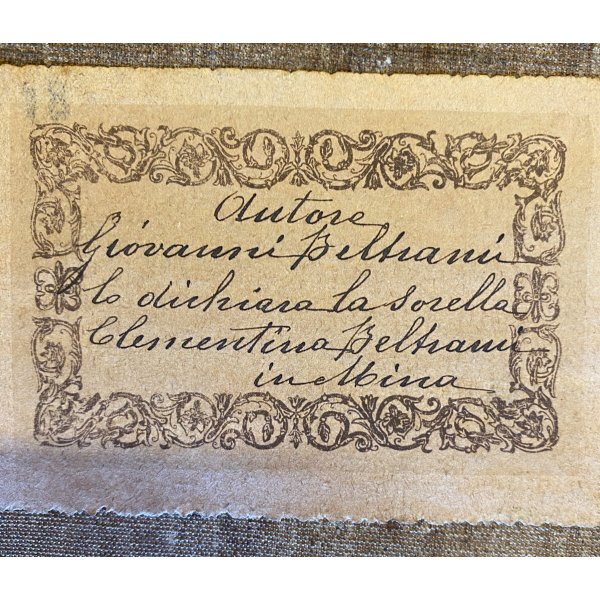 Autore
Giovanni Beltrami
lo dichiara la sorella
Clementina Beltrami
in Mina